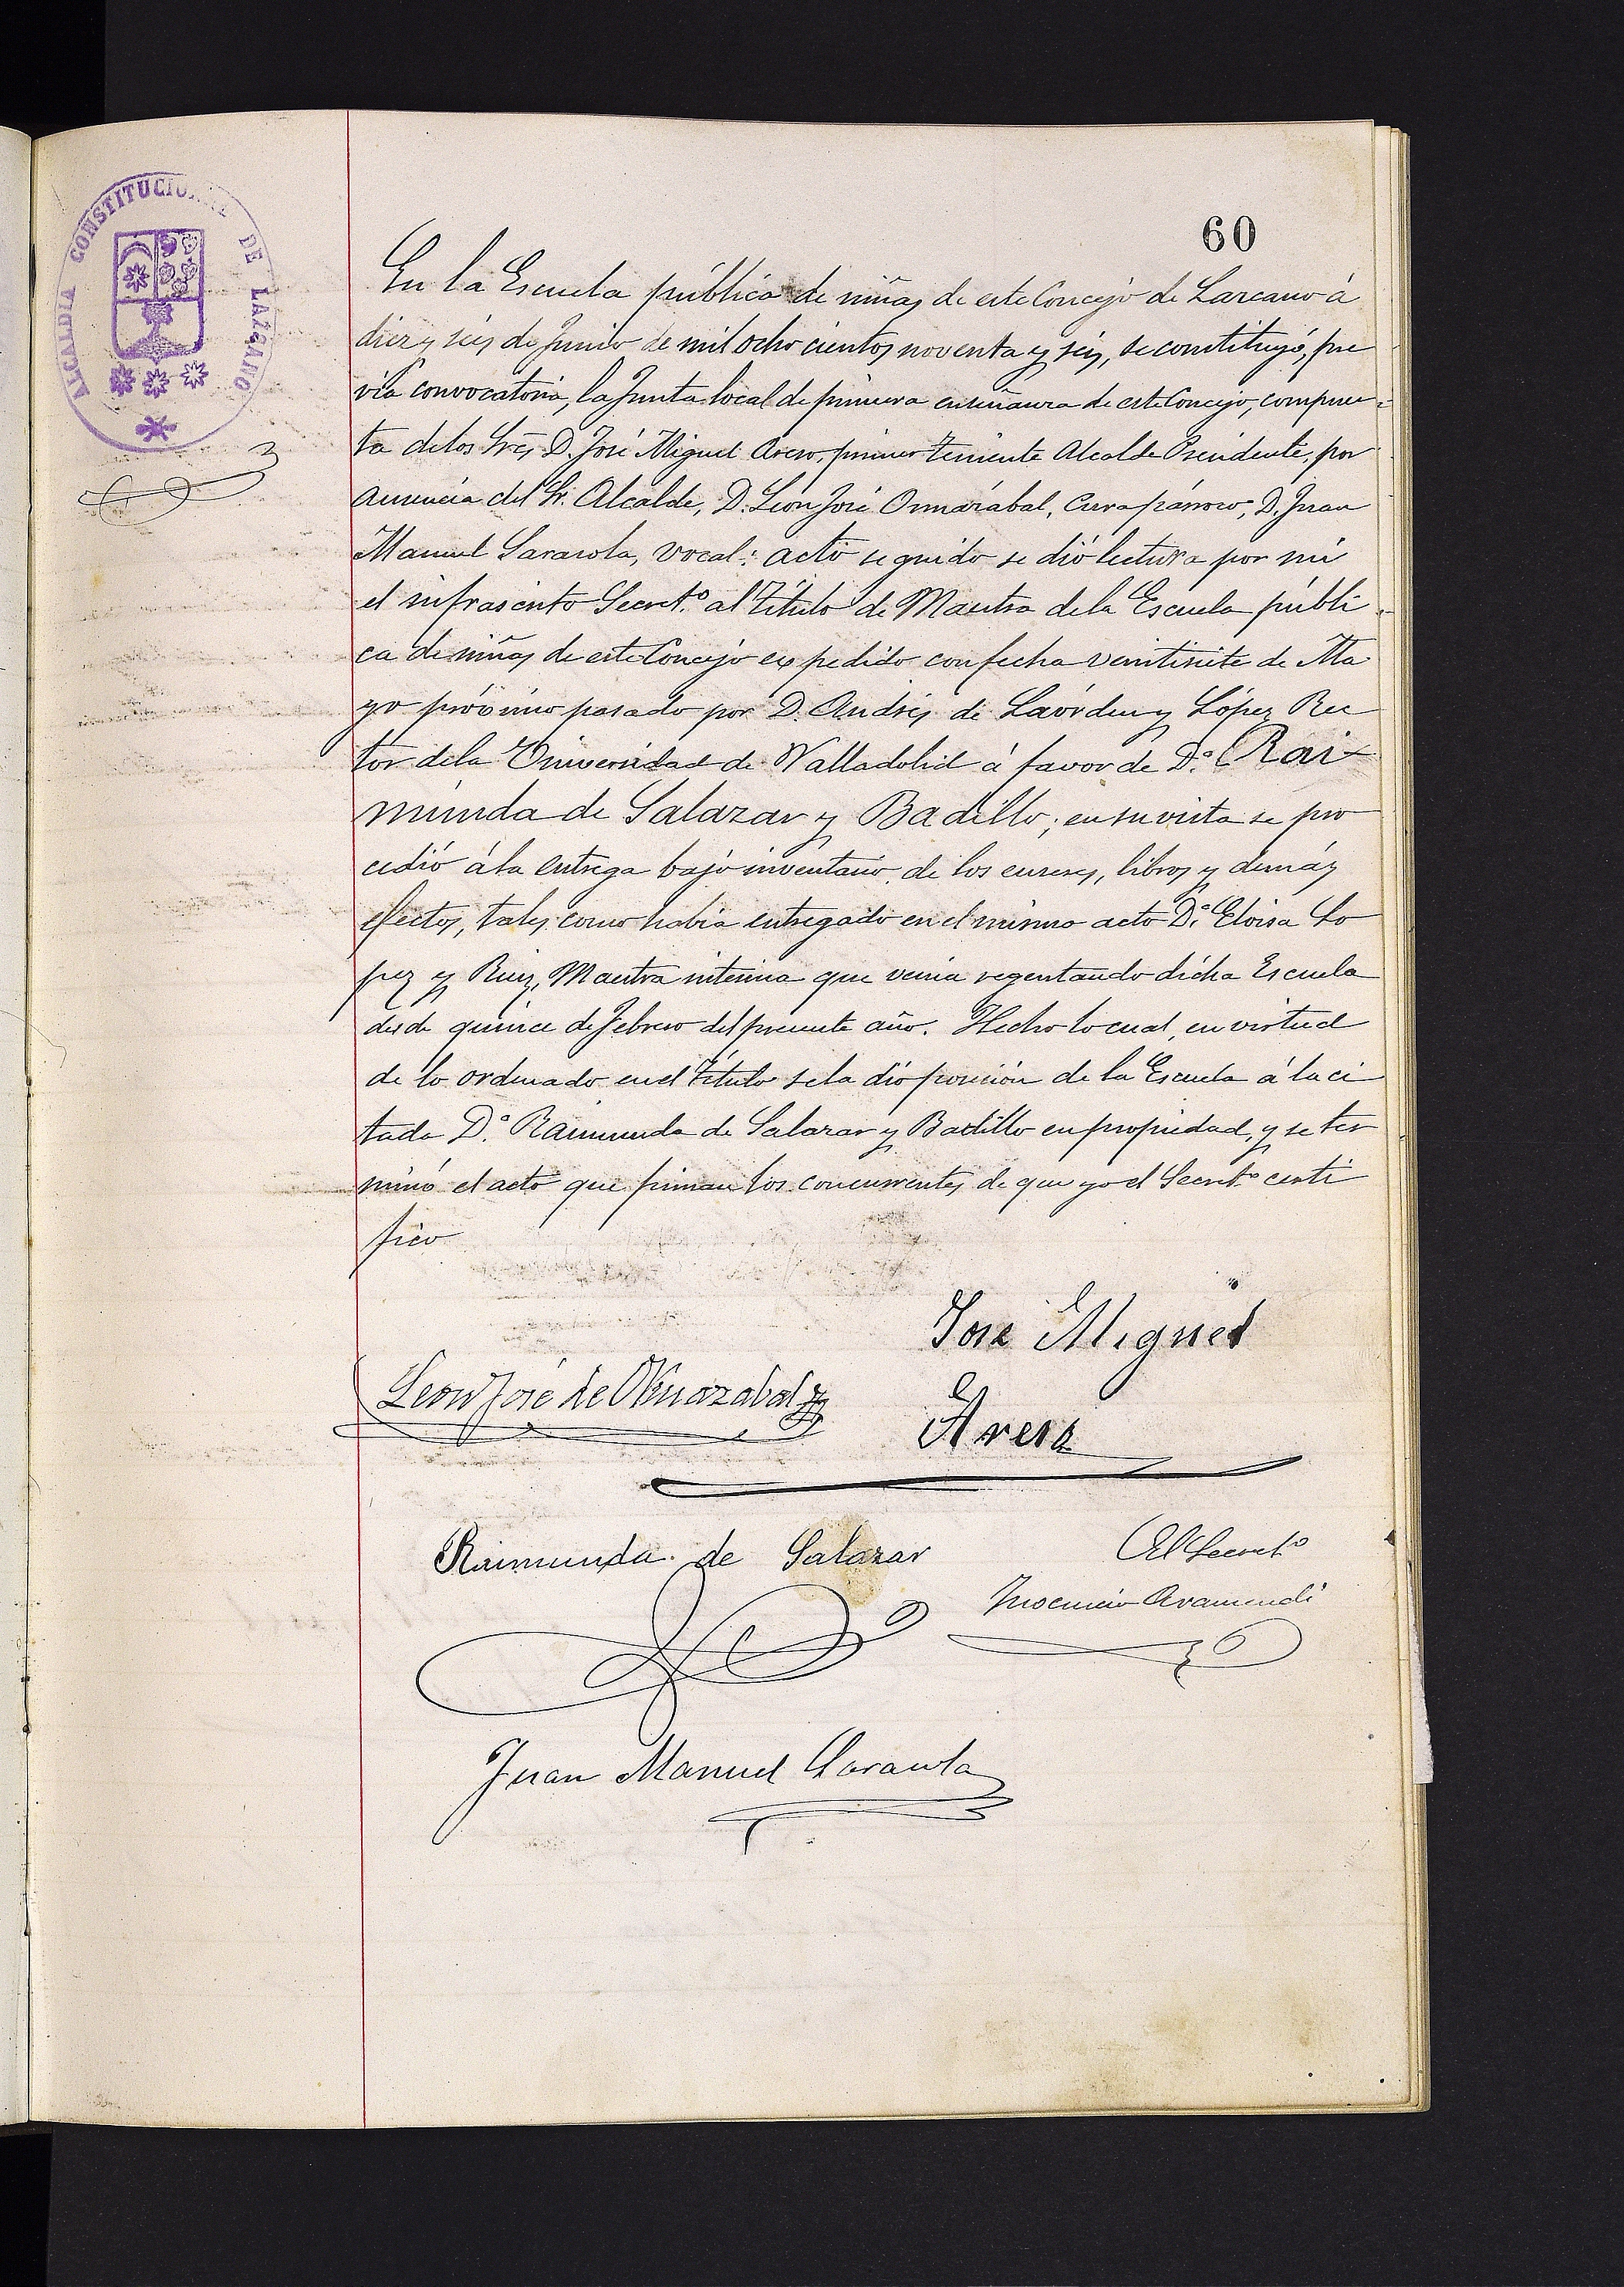 60
ALCALDIA CONSTITUCIONAL DE LAZCANO
En la Escuela pública de niñas de este Concejo de Lazcano á
diez y seis de Junio de mil ocho cientos noventa y seis, se constituyó, pre
via convocatoria, la Junta local de primera enseñanza de este Concejo, compues-
ta de los Sres D. José Miguel Areso, primer teniente Alcalde Presidente, por
ausencia del Sr. Alcalde, D. León José Ormazábal, Cura párroco, D. Juan
Manuel Sarasola, vocal: acto seguido se dió lectura por mi
el infrascrito Secret.º al Título de Maestra de la Escuela públi-
ca de niñas de este Concejo expedido con fecha veintisiete de Ma
yo próximo pasado por D. Andrés de Laórden y López Rec
tor de la Universidad de Valladolid á favor de D.ª Rai
munda de Salazar y Badillo; en su vista se pro
cedió á la entrega bajo inventario, de los enseres, libros y demás
efectos, tales como habia entregado en el mismo acto D.ª Eloisa Lo
pez y Ruiz, Maestra interina que venia regentando dicha Escuela
desde quince de Febrero del presente año. Hecho lo cual, en virtud
de lo ordenado en el Título se la dió posesión de la Escuela á la ci
tada D.ª Raimunda de Salazar y Badillo en propiedad, y se ter
minó el acto que firman los concurrentes de que yo el Secret.º certi
fico
José Miguel
Leon José de Ormazabal
Areso
Raimunda de Salazar
El Secret.º
Inocencio Aramendi
Juan Manuel Sarasola